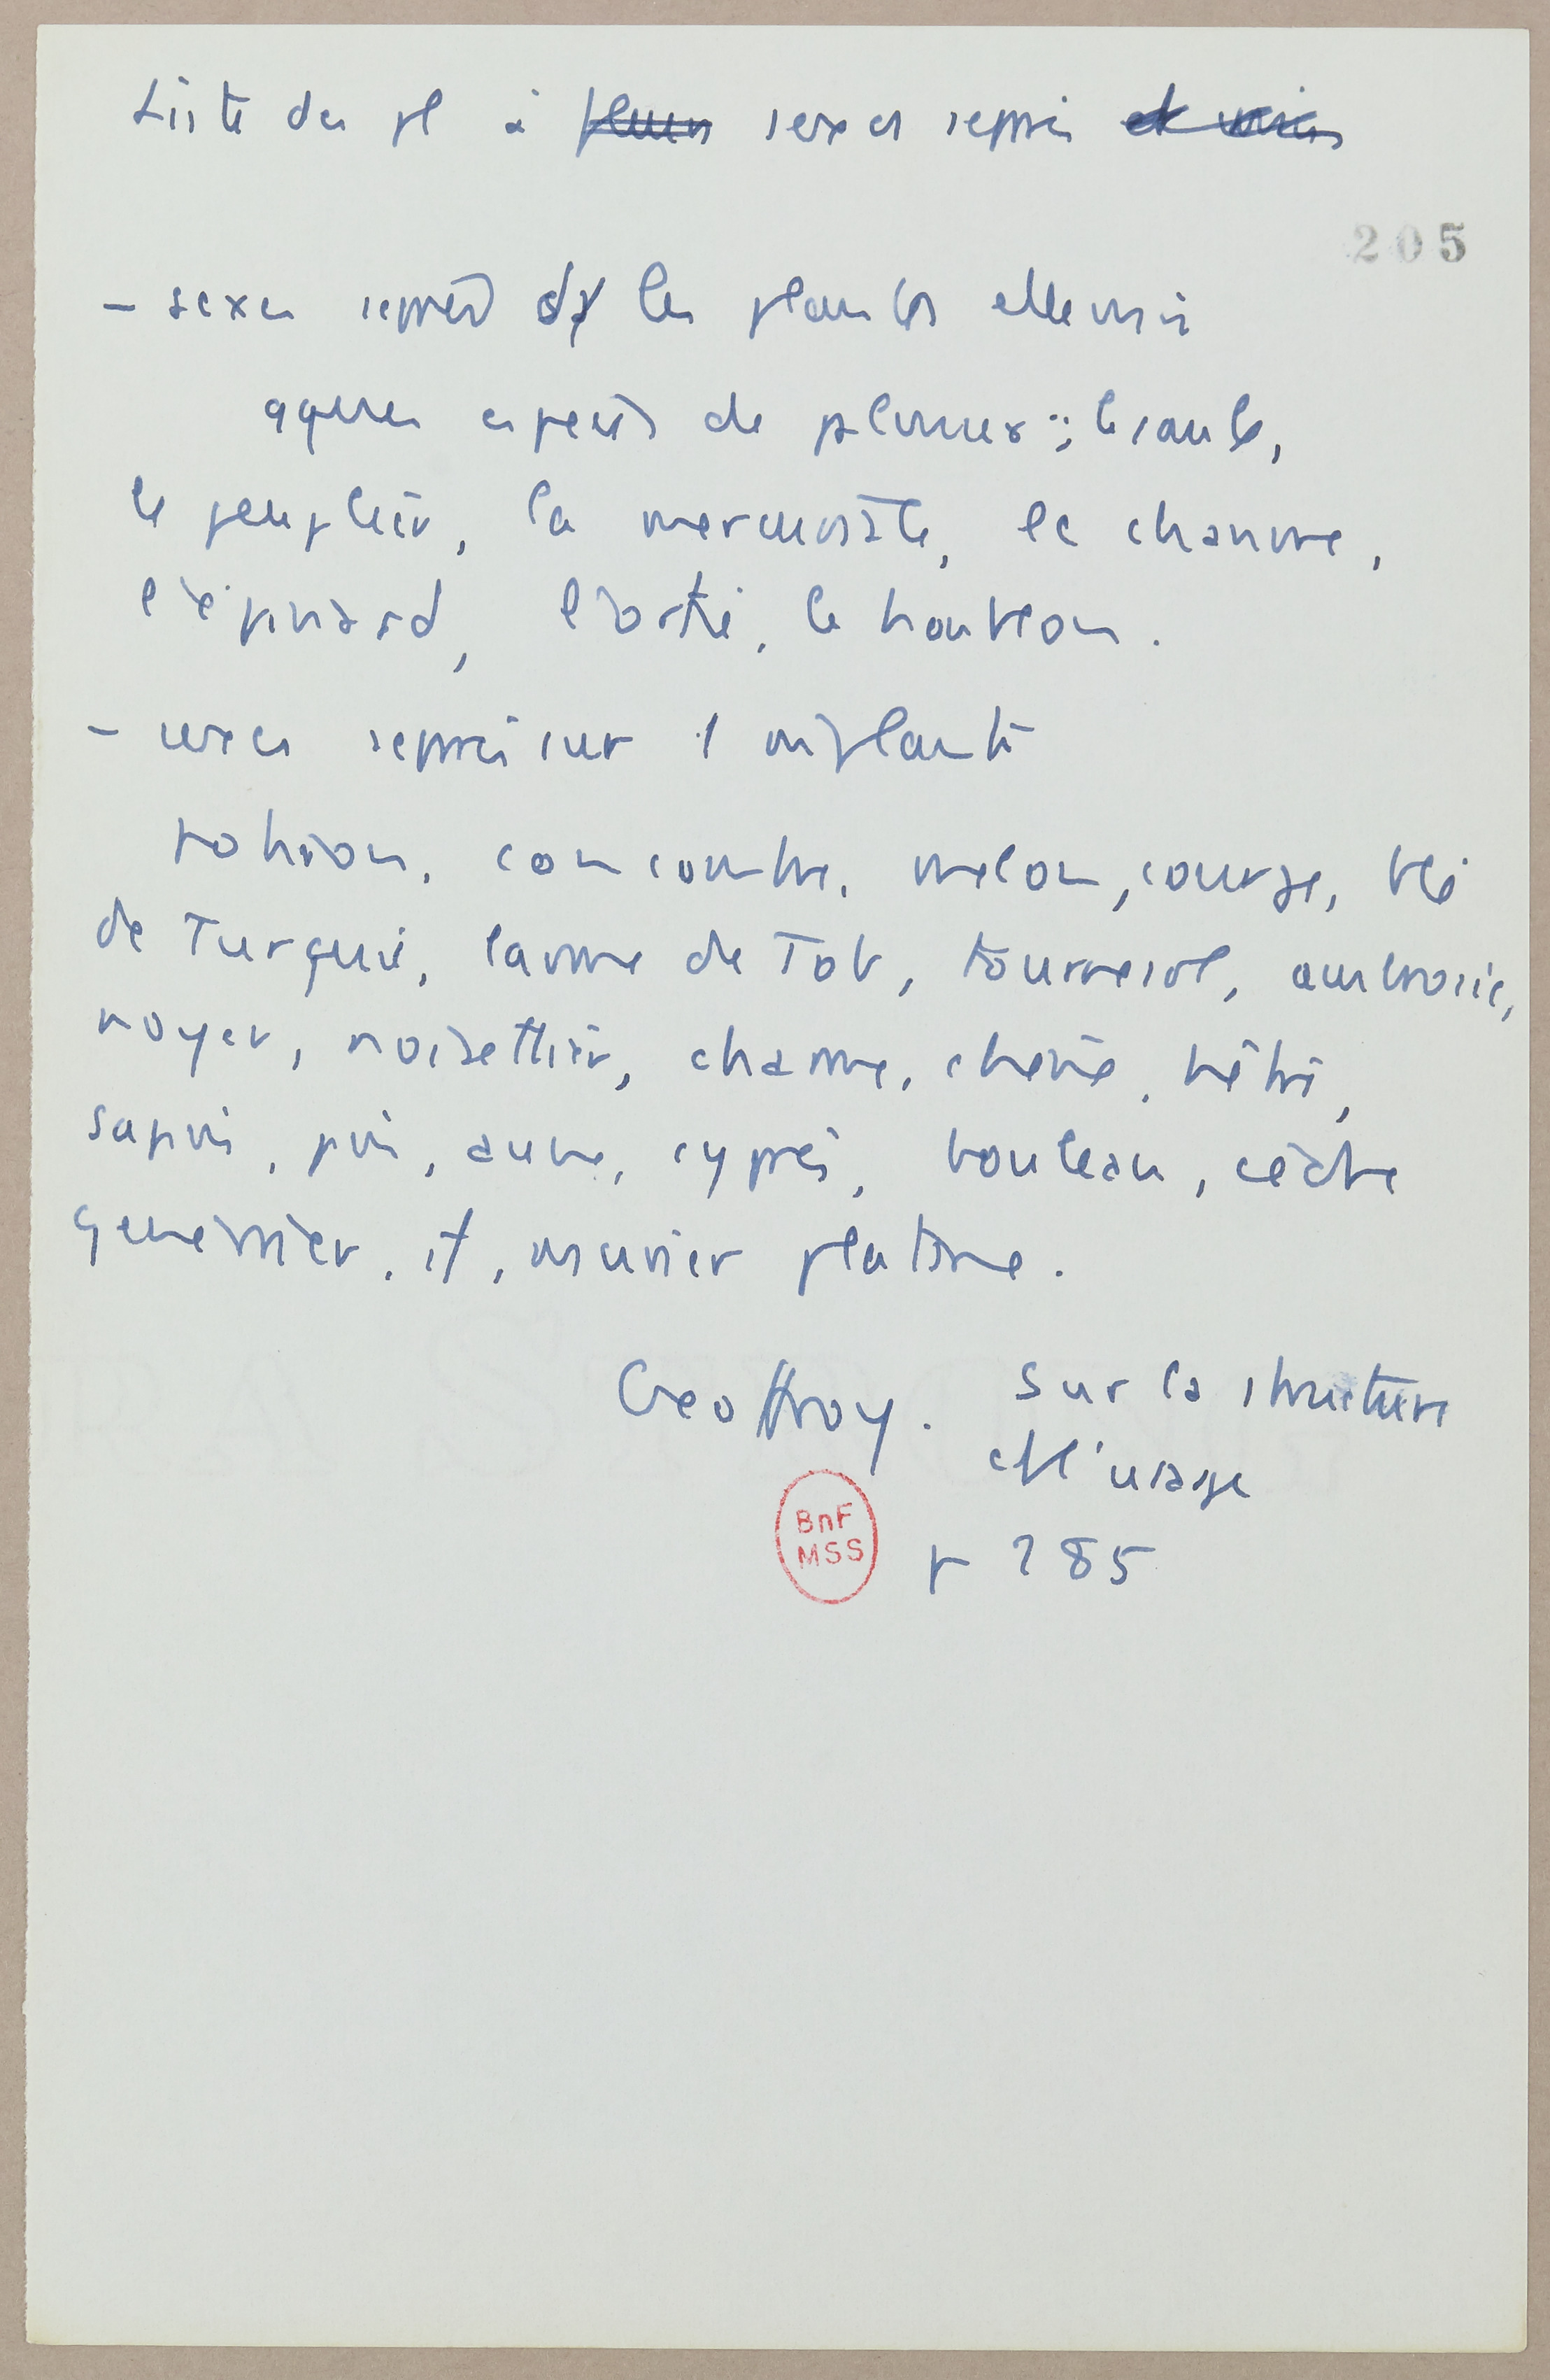 Liste des pl à fleurs sexes séparés et unis
205
- sexes séparés ds les plantes elles mm
qques espèces de palmier : ; le saule,
le peuplier, la mercuriale, le chanvre,
l'épinard, l'ortie, le houblon.
- sexes séparés sur 1 mm plante
potiron, concombre, melon, courge, blé
de Turquie, larme de Job, tournesol, ambroisie,
noyer, noisettier, charme, chêne, hêtre,
sapin, pin, aune, cyprès, bouleau, cèdre
genévrier, if, murier platane.
Geoffroy. Sur la structure
et l'usage
p 285
BnF
MSS